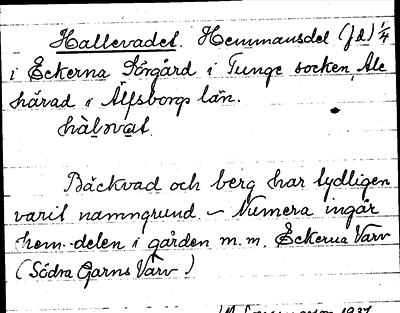 Hallevadet. Hemmansdel (f.d.) 1/4
i Eckerna Sörgård i Tunge socken, Ale
härad i Älfsborgs län.
hàləvat
Bäckvad och berg har tydligen
varit namngrund. – Numera ingår
hem.-delen i gården m.m. Eckerna Varv
(Södra Garns Varv)
1937